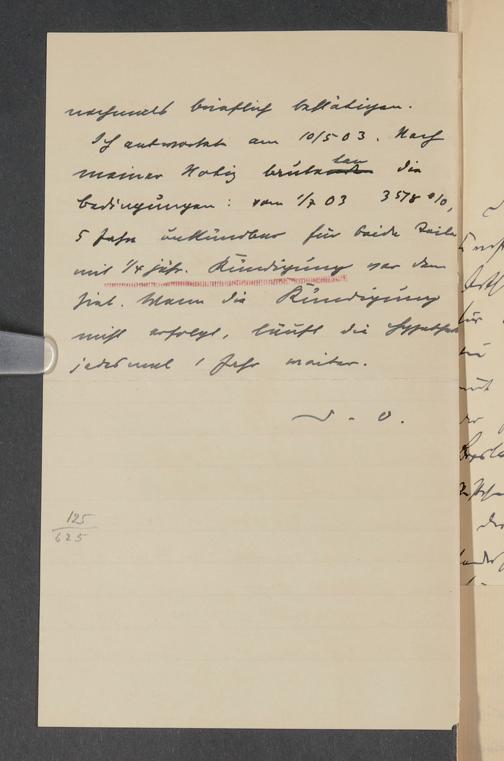 nochmals brieflich bestätigen.
Ich antwortete am 10/5 03. Nach
meiner Notiz lauten die
Bedingungen: vom 1/7 03 3 5/8 %,
5 Jahre unkündbar für beide Teile
mit 1/4 jähr. Kündigung vor dem
Ziel. Wenn die Kündigung
nicht erfolgt, läuft die Hypothek
jedesmal 1 Jahr weiter.
125
625